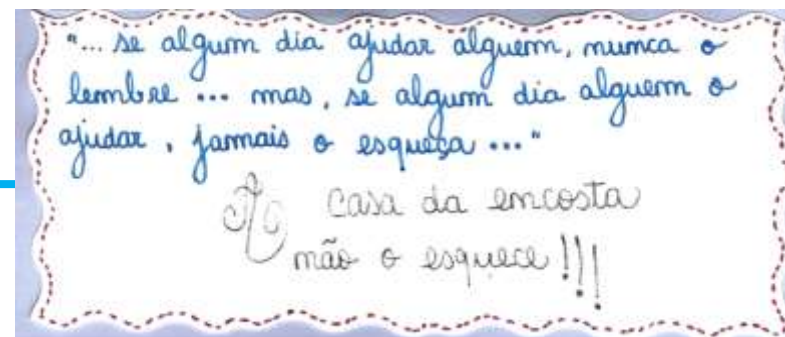 "... se algum dia ajudar alguem, nunca o
lembre ... mas, se algum dia alguem o
ajudar, jamais o esqueça ..."
A casa da encosta
não o esquece!!!